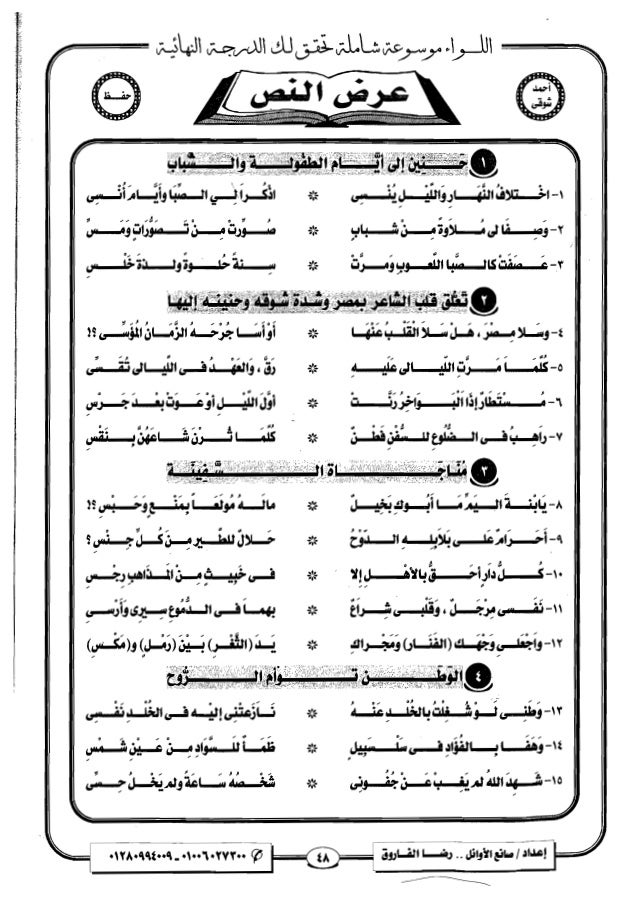 اللواء موسوعة شاملة تحقق لك الدرجة النهائية
أحمد شوقى
عرض النص
حفظ
١ حَنِين إلى أيَّام الطفولة والشباب
١- اخْتلافُ النَّهارِ واللَّيْلِ يُنْسِى * اذكُرا لِى الصِّبا وأيَّامَ أُنْسِى
٢- وَصِفَا لى مُلاوَةً مِنْ شَبابٍ * صُوِّرتْ مِنْ تَصَوُّراتٍ وَمَسِّ
٣- عَصَفَتْ كالصبا اللَّعوبِ وَمَرَّتْ * سِنةً حُلوةً ولذةً خَلْسِ
٢ تعَلُّق قلب الشاعر بمصر وشدة شوقه وحنينه إليها
٤- وسَلا مِصْرَ، هَلْ سَلاَ القَلْبُ عَنْهَا * أوْ أسَا جُرْحَهُ الزَّمانُ المُؤَسِّى ؟!
٥- كُلَّمَا مَرَّتِ اللَّيالى عَليْهِ * رَقَّ، والعَهْدُ فى اللَّيالى تُقَسِّى
٦- مُسْتَطارٌ إذَا الْبَواخِرُ رَنَّتْ * أوَّلَ اللَّيْلِ أوْ عَوَتْ بَعْدَ جَرْسِ
٧- راهِبٌ فى الضُّلوعِ للسُّفْنِ فَطِنٌ * كُلَّمَا ثُرْنَ شَاعَهُنَّ بِنَقْسِ
٣ مُنَاجَاة السَّفِينَة
٨- يَابْنَةَ اليَمِّ مَا أَبُوكِ بَخِيلٌ * مالَهُ مُولَعاً بِمَنْعٍ وَحَبْسِ ؟!
٩- أحَرامٌ عَلى بَلاَبِلِهِ الدَّوْحُ * حَلالٌ للطَّيْرِ مِنْ كُلِّ جِنْسِ ؟
١٠- كُلُّ دَارٍ أحَقُّ بالأهْلِ إلا * فى خَبِيثٍ مِنْ المَذاهِبِ رِجْسِ
١١- نَفَسى مِرْجَلٌ، وَقَلبى شِراعٌ * بهما فى الدُّمُوعِ سِيرى وَأَرْسِى
١٢- وَاجْعَلى وَجْهَكِ (الفَنارَ) وَمَجْراكِ * يَدَ (الثَّغْرِ) بَيْنَ (رَمْلٍ) و(مَكْسِ)
٤ الوَطَن تَوْأم الرُّوح
١٣- وَطَنِى لَوْ شُغِلْتُ بالخُلْدِ عَنْهُ * نَازَعَتْنِى إليْهِ فى الخُلْدِ نَفْسِى
١٤- وَهَفَا بالفُؤَادِ فى سَلْسَبِيلٍ * ظَمَأٌ للسَّوَادِ مِنْ عَيْنِ شَمْسِ
١٥- شَهِدَ اللهُ لَم يَغِبْ عَنْ جُفُونى * شَخْصُهُ سَاعَةً وَلم يَخْلُ حِسِّى
إعداد / صانع الأوائل .. رضا الفاروق
٤٨
٠١٠٠٦٠٢٧٣٠٠ - ٠١٢٨٠٩٩٤٠٠٩